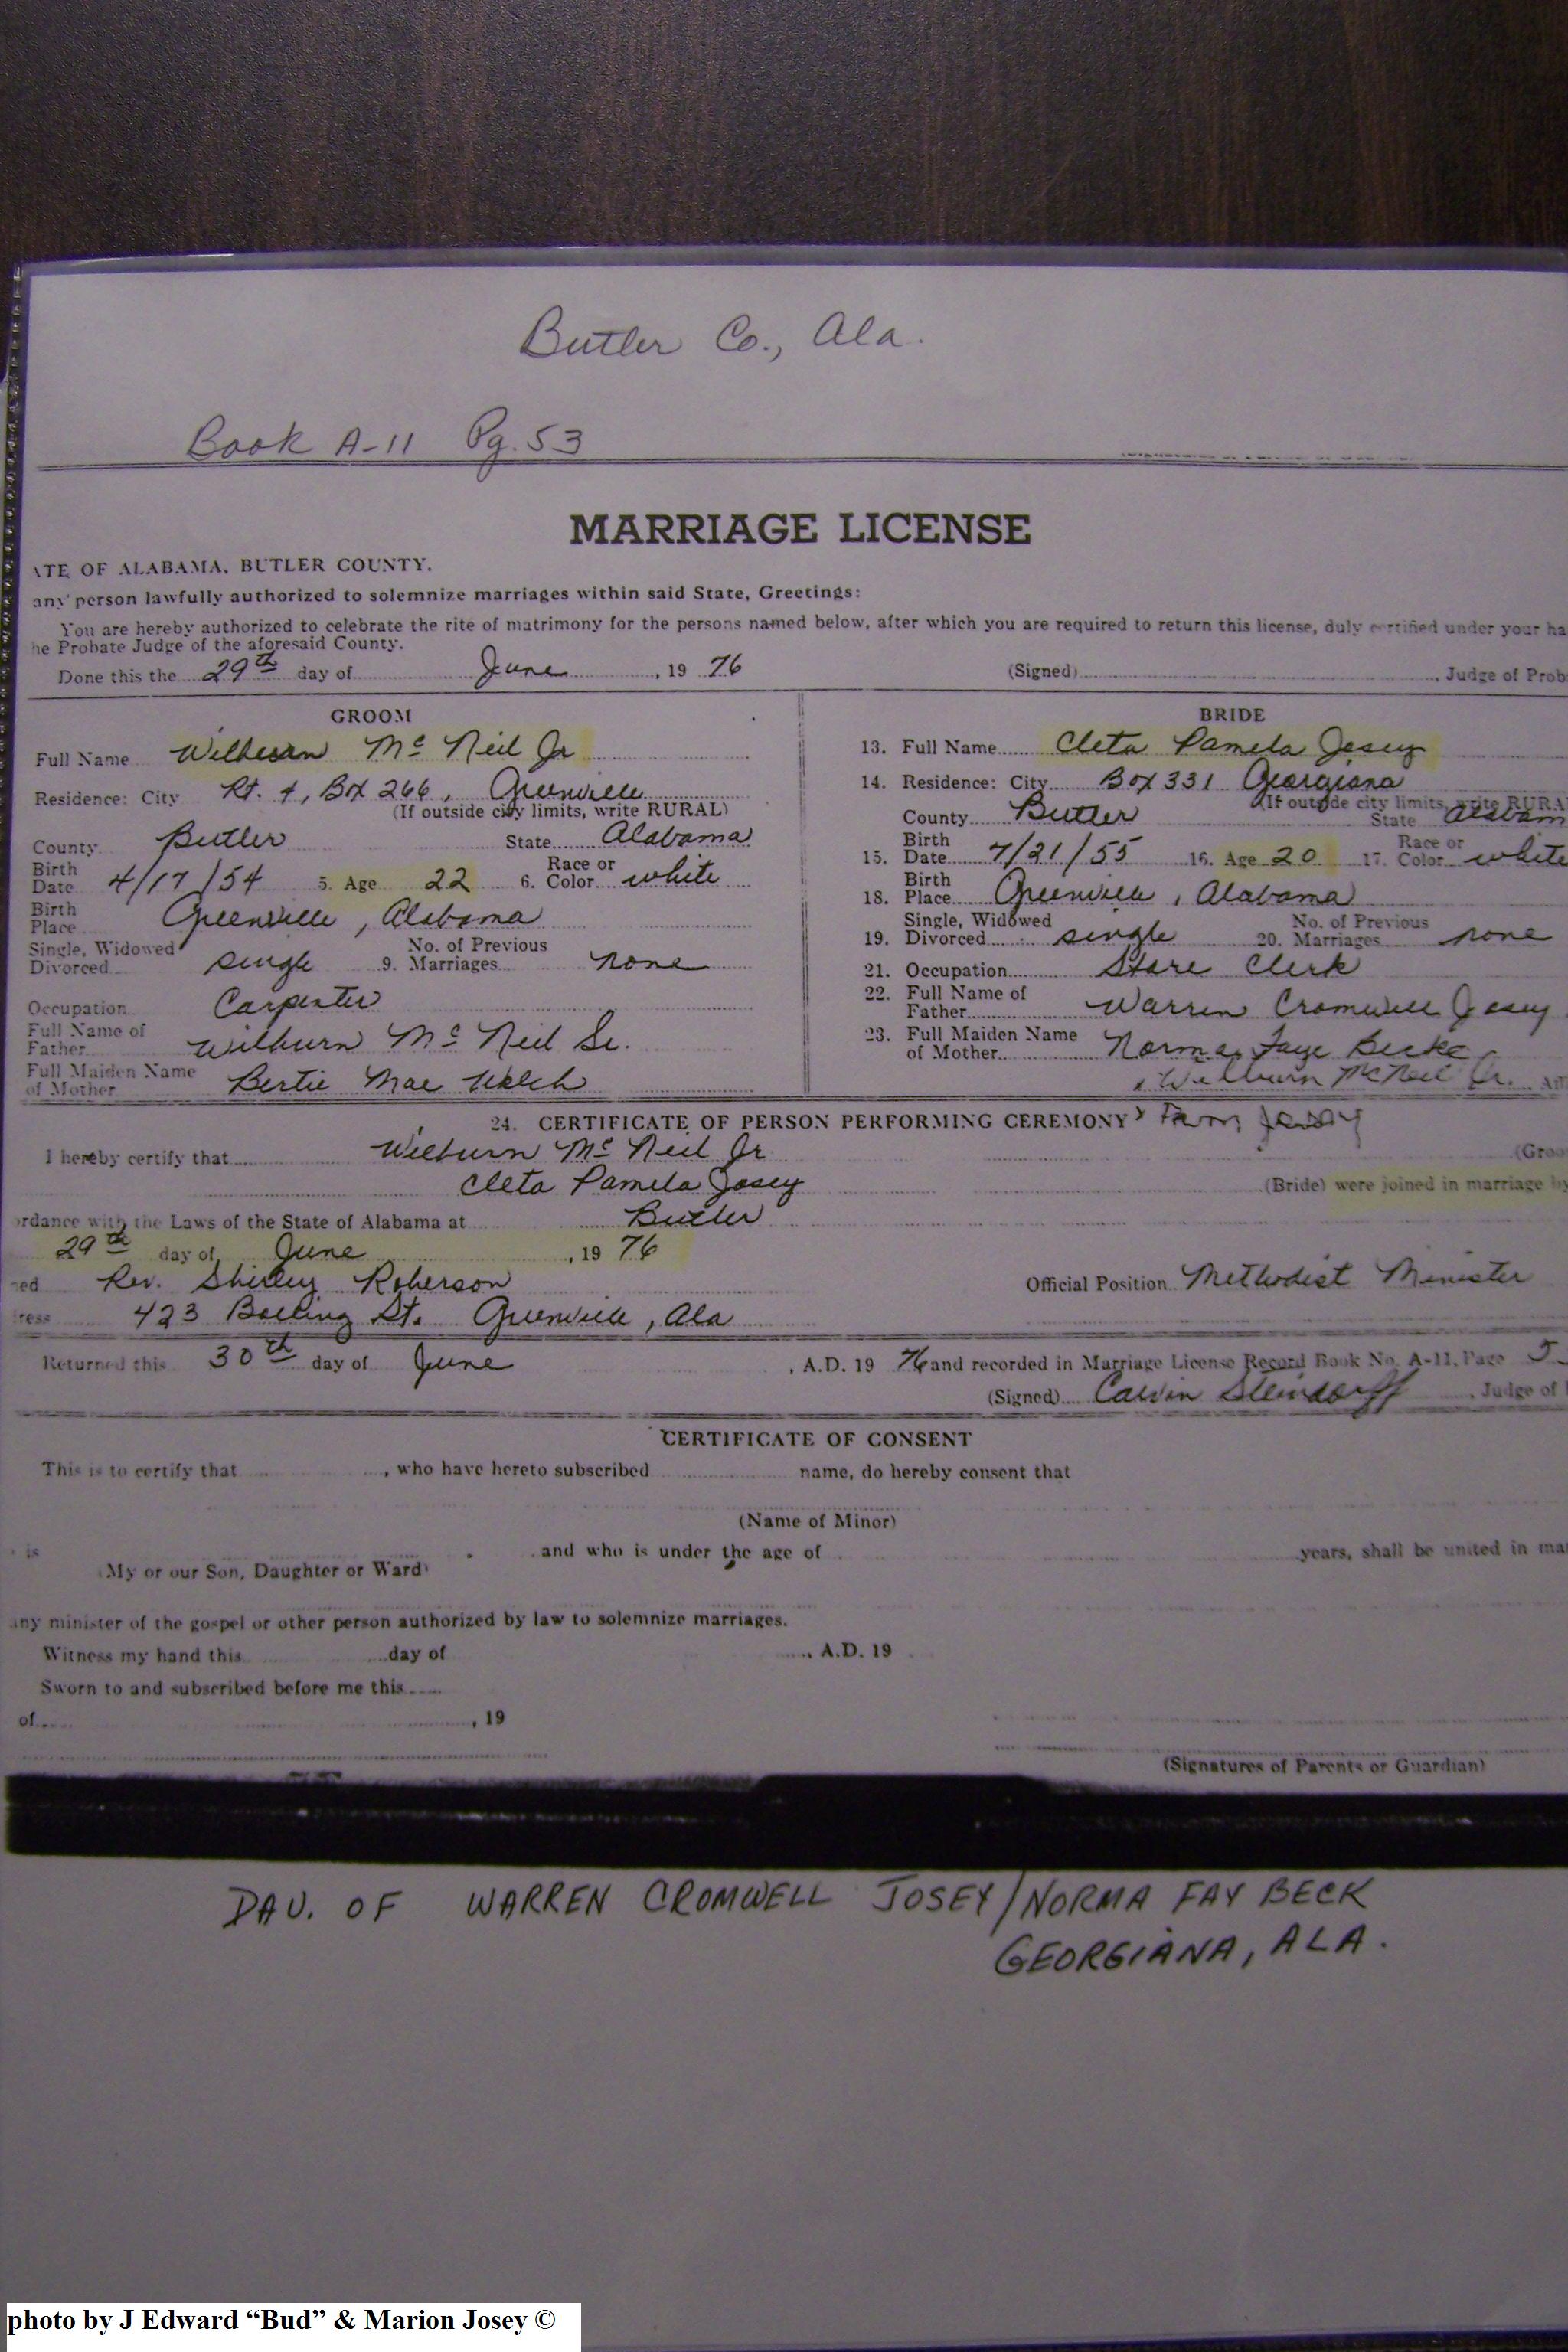 Butler Co., Ala.
Book A-11 Pg. 53
MARRIAGE LICENSE
ATE OF ALABAMA, BUTLER COUNTY.
any person lawfully authorized to solemnize marriages within said State, Greetings:
You are hereby authorized to celebrate the rite of matrimony for the persons named below, after which you are required to return this license, duly certified under your ha
he Probate Judge of the aforesaid County.
Done this the 29th day of June, 19 76 (Signed) , Judge of Prob
GROOM
Full Name Wilburn Mc Neil Jr
Residence: City Rt. 4, Box 266, Greenville
(If outside city limits, write RURAL)
County Butler State Alabama
Birth Date 4/17/54 5. Age 22 6. Race or Color white
Birth Place Greenville, Alabama
Single, Widowed Divorced single 9. No. of Previous Marriages none
Occupation Carpenter
Full Name of Father Wilburn Mc Neil Sr.
Full Maiden Name of Mother Bertie Mae Welch
BRIDE
13. Full Name Cleta Pamela Josey
14. Residence: City Box 331 Georgiana
(If outside city limits, write RURA
County Butler State Alabam
15. Birth Date 7/21/55 16. Age 20 17. Race or Color white
18. Birth Place Greenville, Alabama
19. Single, Widowed Divorced single 20. No. of Previous Marriages none
21. Occupation Store Clerk
22. Full Name of Father Warren Cromwell Josey
23. Full Maiden Name of Mother Norma Faye Beck
x Wilburn McNeil Jr.
24. CERTIFICATE OF PERSON PERFORMING CEREMONY x Pam Josey
I hereby certify that Wilburn Mc Neil Jr (Groo
Cleta Pamela Josey (Bride) were joined in marriage by
ordance with the Laws of the State of Alabama at Butler
29th day of June, 19 76
ned Rev. Shirley Roberson Official Position Methodist Minister
ress 423 Bolling St. Greenville, Ala
Returned this 30th day of June, A.D. 19 76 and recorded in Marriage License Record Book No. A-11, Page 5
(Signed) Calvin Steindorff, Judge of
CERTIFICATE OF CONSENT
This is to certify that , who have hereto subscribed name, do hereby consent that
(Name of Minor)
is and who is under the age of years, shall be united in ma
(My or our Son, Daughter or Ward)
any minister of the gospel or other person authorized by law to solemnize marriages.
Witness my hand this day of , A.D. 19
Sworn to and subscribed before me this
of , 19
(Signatures of Parents or Guardian)
DAU. OF WARREN CROMWELL JOSEY/NORMA FAY BECK
GEORGIANA, ALA.
photo by J Edward “Bud” & Marion Josey ©